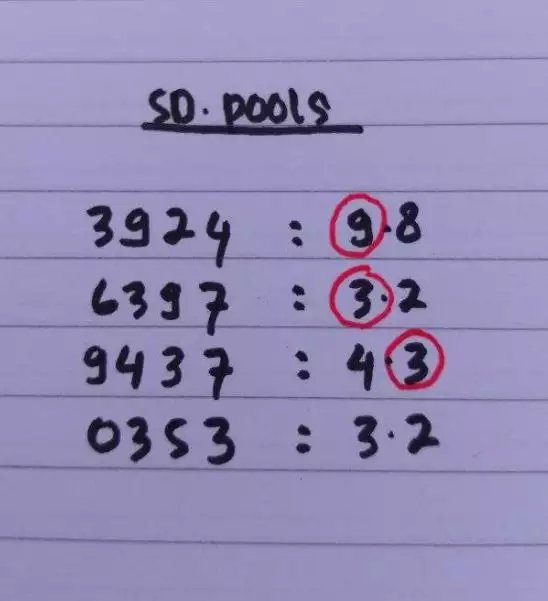 SD. pools
3924 : 9.8
6397 : 3.2
9437 : 4.3
0353 : 3.2